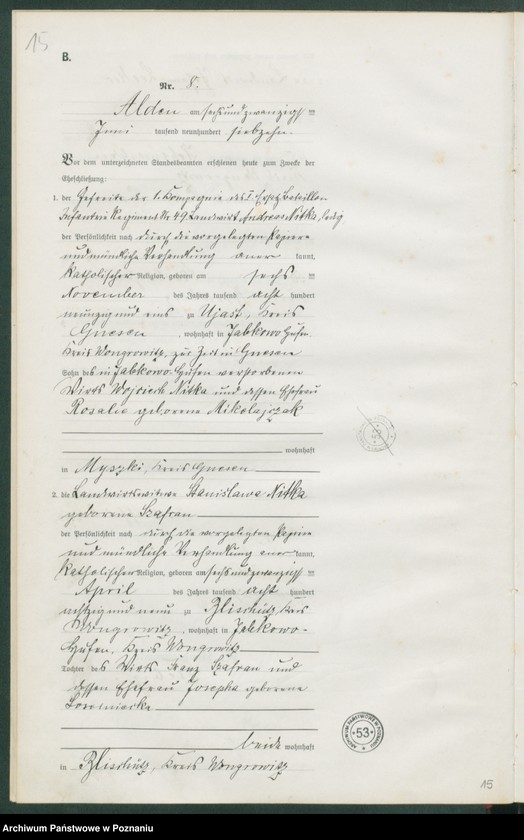 15
B.
Nr. 8.
Alden am sechsundzwanzigsten
Juni tausend neunhundert siebzehn.
Vor dem unterzeichneten Standesbeamten erschienen heute zum Zwecke der
Eheschließung:
1. der Gefreite der 1. Kompagnie des I. Bataillon
Infanterie Regiment Nr 49 Landwirt Andreas Nitka, ledig
der Persönlichkeit nach durch die vorgelegten Papiere
und mündliche Verhandlung aner kannt,
katholischer Religion, geboren am sechs ten
November des Jahres tausend acht hundert
neunzig und eins zu Ujast, Kreis
Gnesen, wohnhaft in Jabkowo Hufen
Kreis Wongrowitz, zur Zeit in Gnesen
Sohn des in Jabkowo-Hufen verstorbenen
Wirts Wojciech Nitka und dessen Ehefrau
Rosalie geborene Mikolajczak
wohnhaft
in Myszki, Kreis Gnesen
2. die Landwirtswitwe Stanislawa Nitka
geborene Szafran
der Persönlichkeit nach durch die vorgelegten Papiere
und mündliche Verhandlung aner kannt,
katholischer Religion, geboren am sechsundzwanzigsten
April des Jahres tausend acht hundert
achtzig und neun zu Kreis
Wongrowitz, wohnhaft in Jabkowo-
Hufen, Kreis Wongrowitz
Tochter des Wirts Franz Szafran und
dessen Ehefrau Josepha geborene
beide wohnhaft
in Kreis Wongrowitz
ARCHIWUM PAŃSTWOWE W POZNANIU
53
15
Archiwum Państwowe w Poznaniu